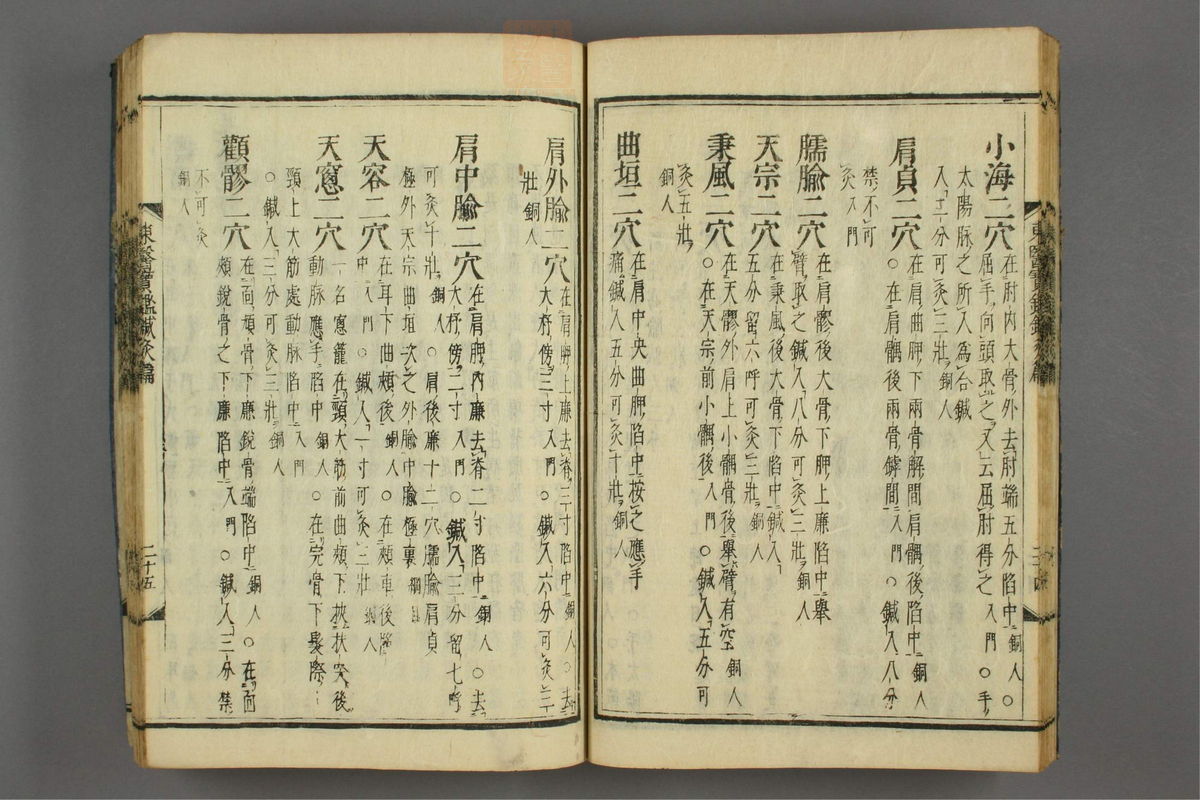 小海二穴在肘內大骨外去肘端五分陷中銅人○
屈手向頭取之又云屈肘得之入門○手
太陽脉之所入爲合鍼
入二分可灸三壯銅人
肩貞二穴在肩曲胛下兩骨解間肩髃後陷中銅人
○在肩髃後兩骨罅間入門○鍼入八分
禁不可
灸入門
臑腧二穴在肩髎後大骨下胛上廉陷中擧
臂取之鍼入八分可灸三壯銅人
天宗二穴在秉風後大骨下陷中鍼入
五分留六呼可灸三壯銅人
秉風二穴在天髎外肩上小髃骨後擧臂有空銅人
○在天宗前小髃後入門○鍼入五分可
灸五壯
銅人
曲垣二穴在肩中央曲胛陷中按之應手
痛鍼入五分可灸十壯銅人
肩外腧二穴在肩胛上廉去脊三寸陷中銅人○去
大杼傍三寸入門○鍼入六分可灸三
壯銅人
肩中腧二穴在肩胛內廉去脊二寸陷中銅人○去
大杼傍二寸入門○鍼入三分留七呼
可灸十壯銅人○肩後廉十二穴臑腧肩貞
極外天宗曲垣次之外腧中腧極裏
天容二穴在耳下曲頰後銅人○在頰車後陷
中入門○鍼入一寸可灸三壯銅人
天窓二穴一名窓籠在頸大筋前曲頰下挾扶突後
動脉應手陷中銅人○在完骨下髮際
頸上大筋處動脉陷中入門
○鍼入三分可灸三壯銅人
顴髎二穴在面頄骨下廉銳骨端陷中銅人○在面
頰銳骨之下下廉陷中入門○鍼入二分禁
不可灸
銅人
東醫寶鑑鍼灸篇
二十四
東醫寶鑑鍼灸篇
二十五